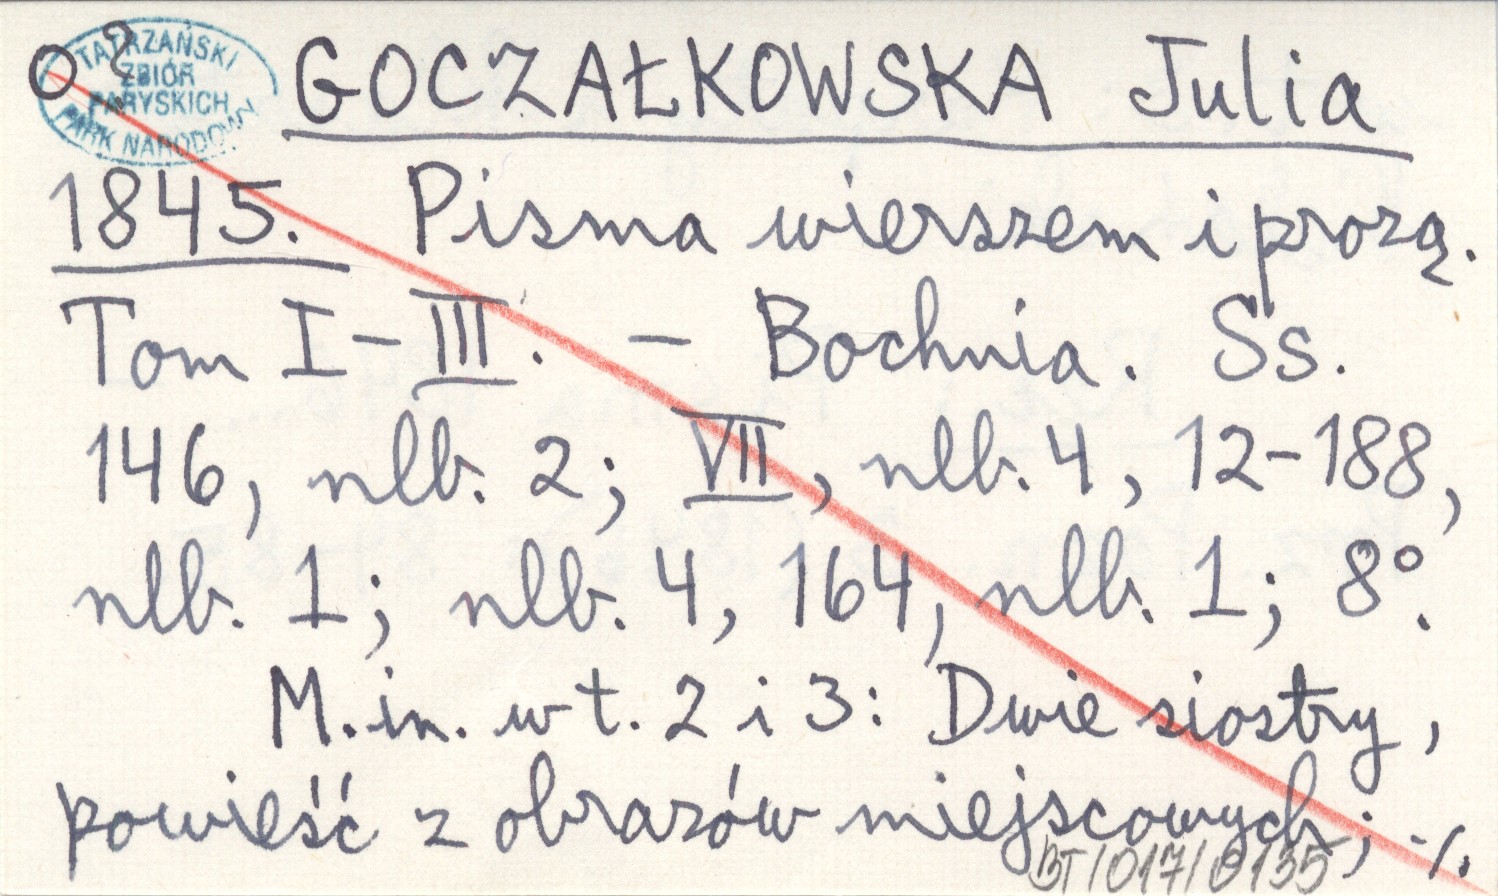 O ?
TATRZAŃSKI
ZBIÓR
PARYSKICH
PARK NARODOWY
GOCZAŁKOWSKA Julia
1845. Pisma wierszem i prozą.
Tom I-III. - Bochnia. Ss.
146, nlb. 2; VII, nlb. 4, 12-188,
nlb. 1; nlb. 4, 164, nlb. 1; 8°.
M. in. w t. 2 i 3: Dwie siostry,
powieść z obrazów miejscowych; ·/.
BT/017/0135